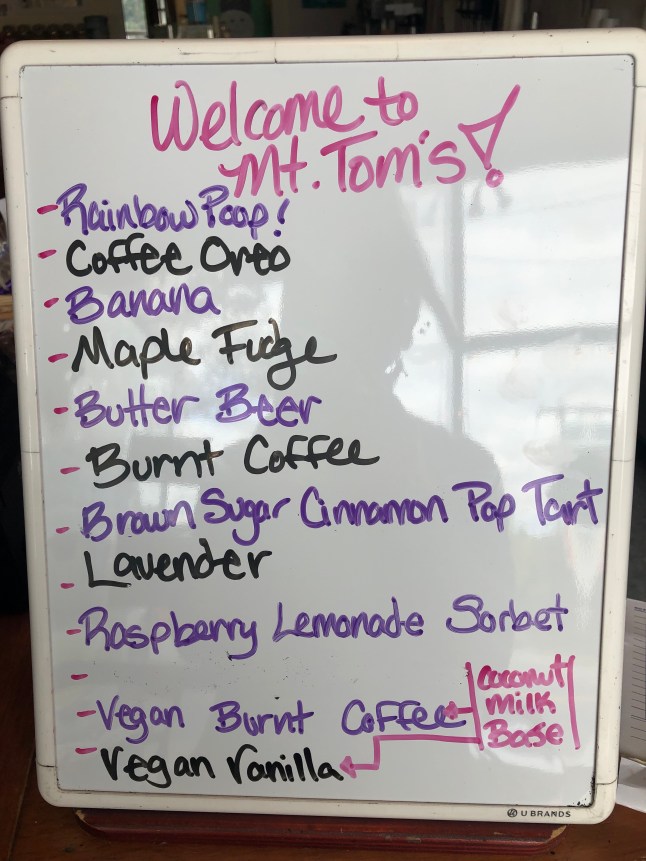 Welcome to
Mt. Tom's!
- Rainbow Poop!
- Coffee Oreo
- Banana
- Maple Fudge
- Butter Beer
- Burnt Coffee
- Brown Sugar Cinnamon Pop Tart
- Lavender
- Raspberry Lemonade Sorbet
-
- Vegan Burnt Coffee
- Vegan Vanilla
Coconut
Milk
Base
U BRANDS